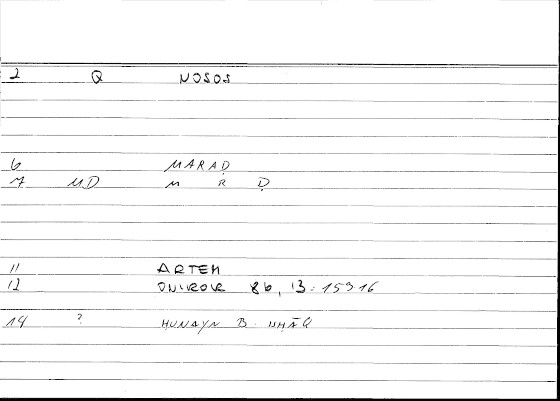 2 Q NOSOS
6 MARAḌ
7 MD M R Ḍ
11 ARTEM
12 ONIROK 86, 13 : 15916
14 ? HUNAYN B.